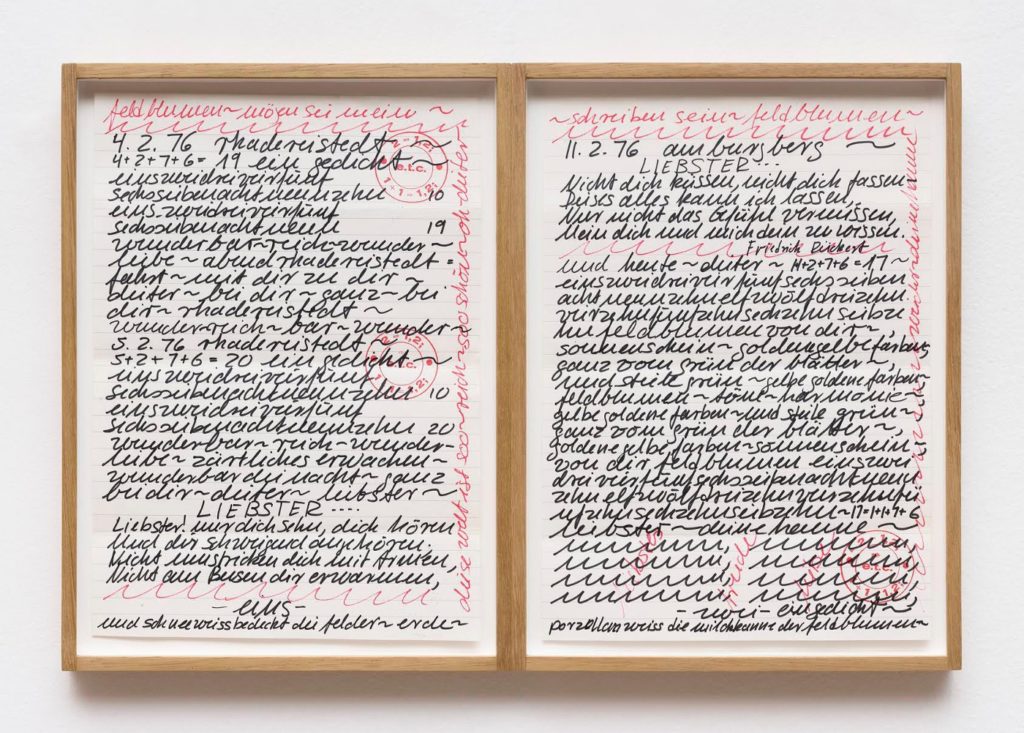 feldblumen~ mögen sei mein ~
4. 2. 76 rhadereistedt ~
4+2+7+6= 19 ein gedicht ~
einszweidreivierfünf
sechssiebenachtneunzehn 10
einszweidreivierfünf
sechssiebenachtneun 19
wunderbar~reich~wunder~
liebe~ abend rhadereistedt =
fahrt~ mit dir zu dir ~
dieter~ bei dir~ ganz~ bei
dir~ rhadereistedt ~
wunder~reich~ bar~ wunder~
5. 2. 76 rhadereistedt ~
5+2+7+6= 20 ein gedicht ~
einszweidreivierfünf
sechssiebenachtneunzehn 10
einszweidreivierfünf
sechssiebenachtneunzehn 20
wunderbar~ reich~wunder~
liebe~ zärtliches erwachen~
wunderbar die nacht~ ganz
bei dir~ dieter~ liebster ~
LIEBSTER ....
Liebster! nur dich sehn, dich hören
Und dir schweigend angehören:
Nicht umstricken dich mit Armen,
Nicht am Busen dir erwarmen,
- eins -
und schneeweissbedeckt die felder~ erde~
diese welt ist soo~reich~soo schön~oh dieter
1.2.
e.t.c.
1 - 1.2.
1.2.
e.t.c.
~schreiben sein~ feldblumen~
11. 2. 76 amburgberg ~
LIEBSTER ...
Nicht dich küssen, nicht dich fassen=
Dieses alles kann ich lassen,
Nur nicht das Gefühl vermissen,
Mein dich und mich dein zu wissen.
Friedrich Rückert
und heute~ dieter~ 11+2+7+6= 17 ~
einszweidreivierfünfsechssieben
achtneunzehnelfzwölfdreizehn
vierzehnfünfzehnsechzehnsiebze
hn feldblumen von dir~,
sonnenschein~ goldengelbe farben,
ganz vom grün der blätter ~
und stiele grün~ gelbe goldene farben,
feldblumen~ töne~ harmonie~
gelbe goldene farben~und stiele grün~
ganz vom grün der blätter~,
goldene gelbe farben~sonnenschein~
von dir, feldblumen einszwei
dreivierfünfsechssiebenachtneun
zehnelfzwölfdreizehnvierzehnfü
nfzehnsechzehnsiebzehn~17=1+1+9+6
liebster~ deine hanne ~
- zwei - ein gedicht ~,
porzellanweiss die milchkanne der feldblumen~
e.t.c.